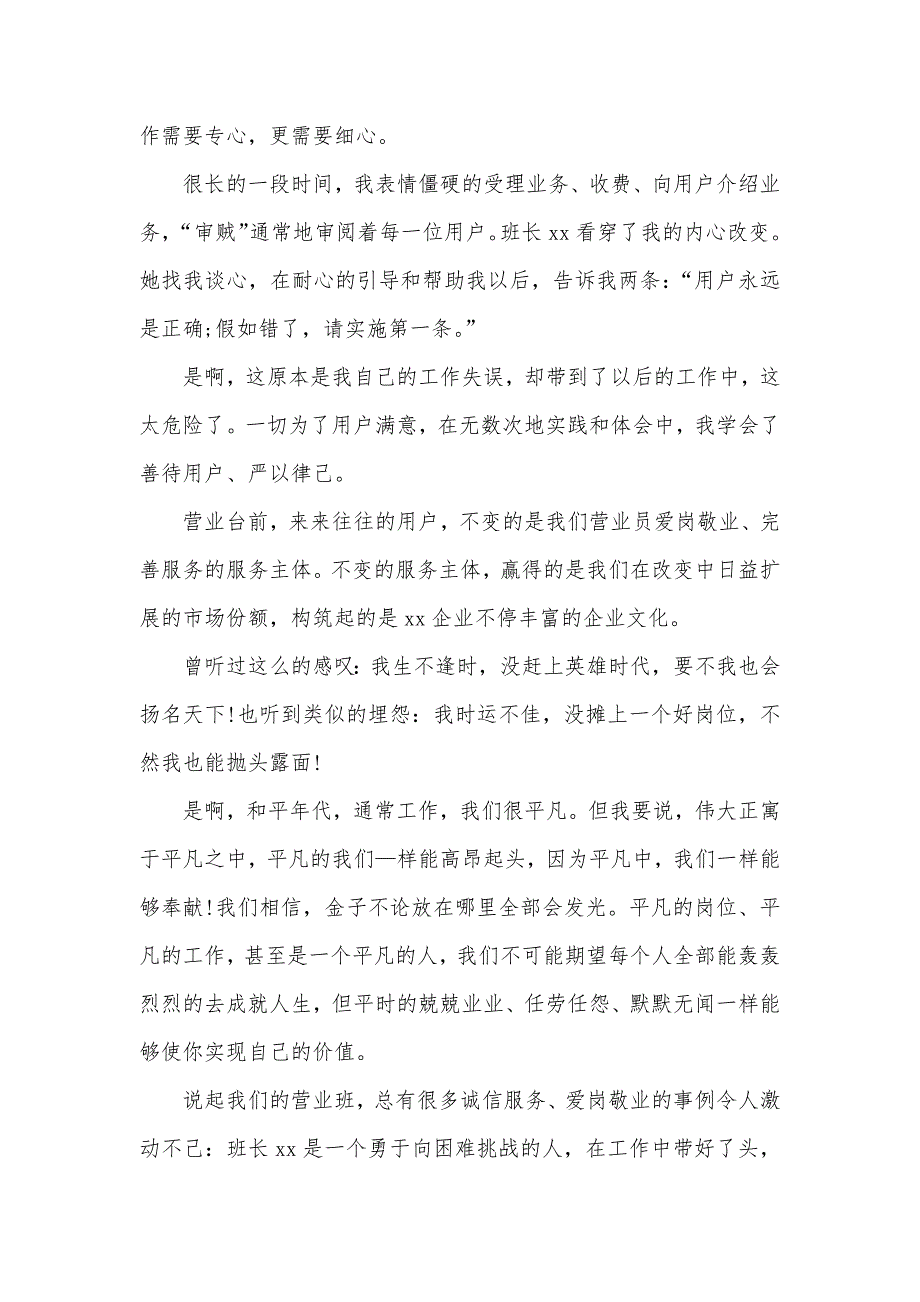 作需要专心，更需要细心。
很长的一段时间，我表情僵硬的受理业务、收费、向用户介绍业
务，“审贼”通常地审阅着每一位用户。班长 xx 看穿了我的内心改变。
她找我谈心，在耐心的引导和帮助我以后，告诉我两条：“用户永远
是正确;假如错了，请实施第一条。”
是啊，这原本是我自己的工作失误，却带到了以后的工作中，这
太危险了。一切为了用户满意，在无数次地实践和体会中，我学会了
善待用户、严以律己。
营业台前，来来往往的用户，不变的是我们营业员爱岗敬业、完
善服务的服务主体。不变的服务主体，赢得的是我们在改变中日益扩
展的市场份额，构筑起的是 xx 企业不停丰富的企业文化。
曾听过这么的感叹：我生不逢时，没赶上英雄时代，要不我也会
扬名天下!也听到类似的埋怨：我时运不佳，没摊上一个好岗位，不
然我也能抛头露面!
是啊，和平年代，通常工作，我们很平凡。但我要说，伟大正寓
于平凡之中，平凡的我们—样能高昂起头，因为平凡中，我们一样能
够奉献!我们相信，金子不论放在哪里全部会发光。平凡的岗位、平
凡的工作，甚至是一个平凡的人，我们不可能期望每个人全部能轰轰
烈烈的去成就人生，但平时的兢兢业业、任劳任怨、默默无闻一样能
够使你实现自己的价值。
说起我们的营业班，总有很多诚信服务、爱岗敬业的事例令人激
动不已：班长 xx 是一个勇于向困难挑战的人，在工作中带好了头，